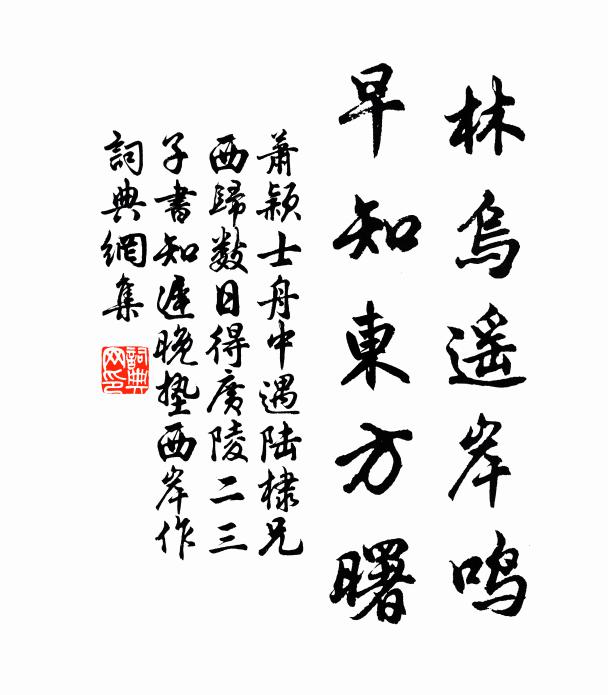 林烏遥岸鳴
早知東方曙
蕭穎士舟中遇陸棣兄
西歸数日得廣陵二三
子書知遲晚墊西岸作
詞典網集
詞典网印